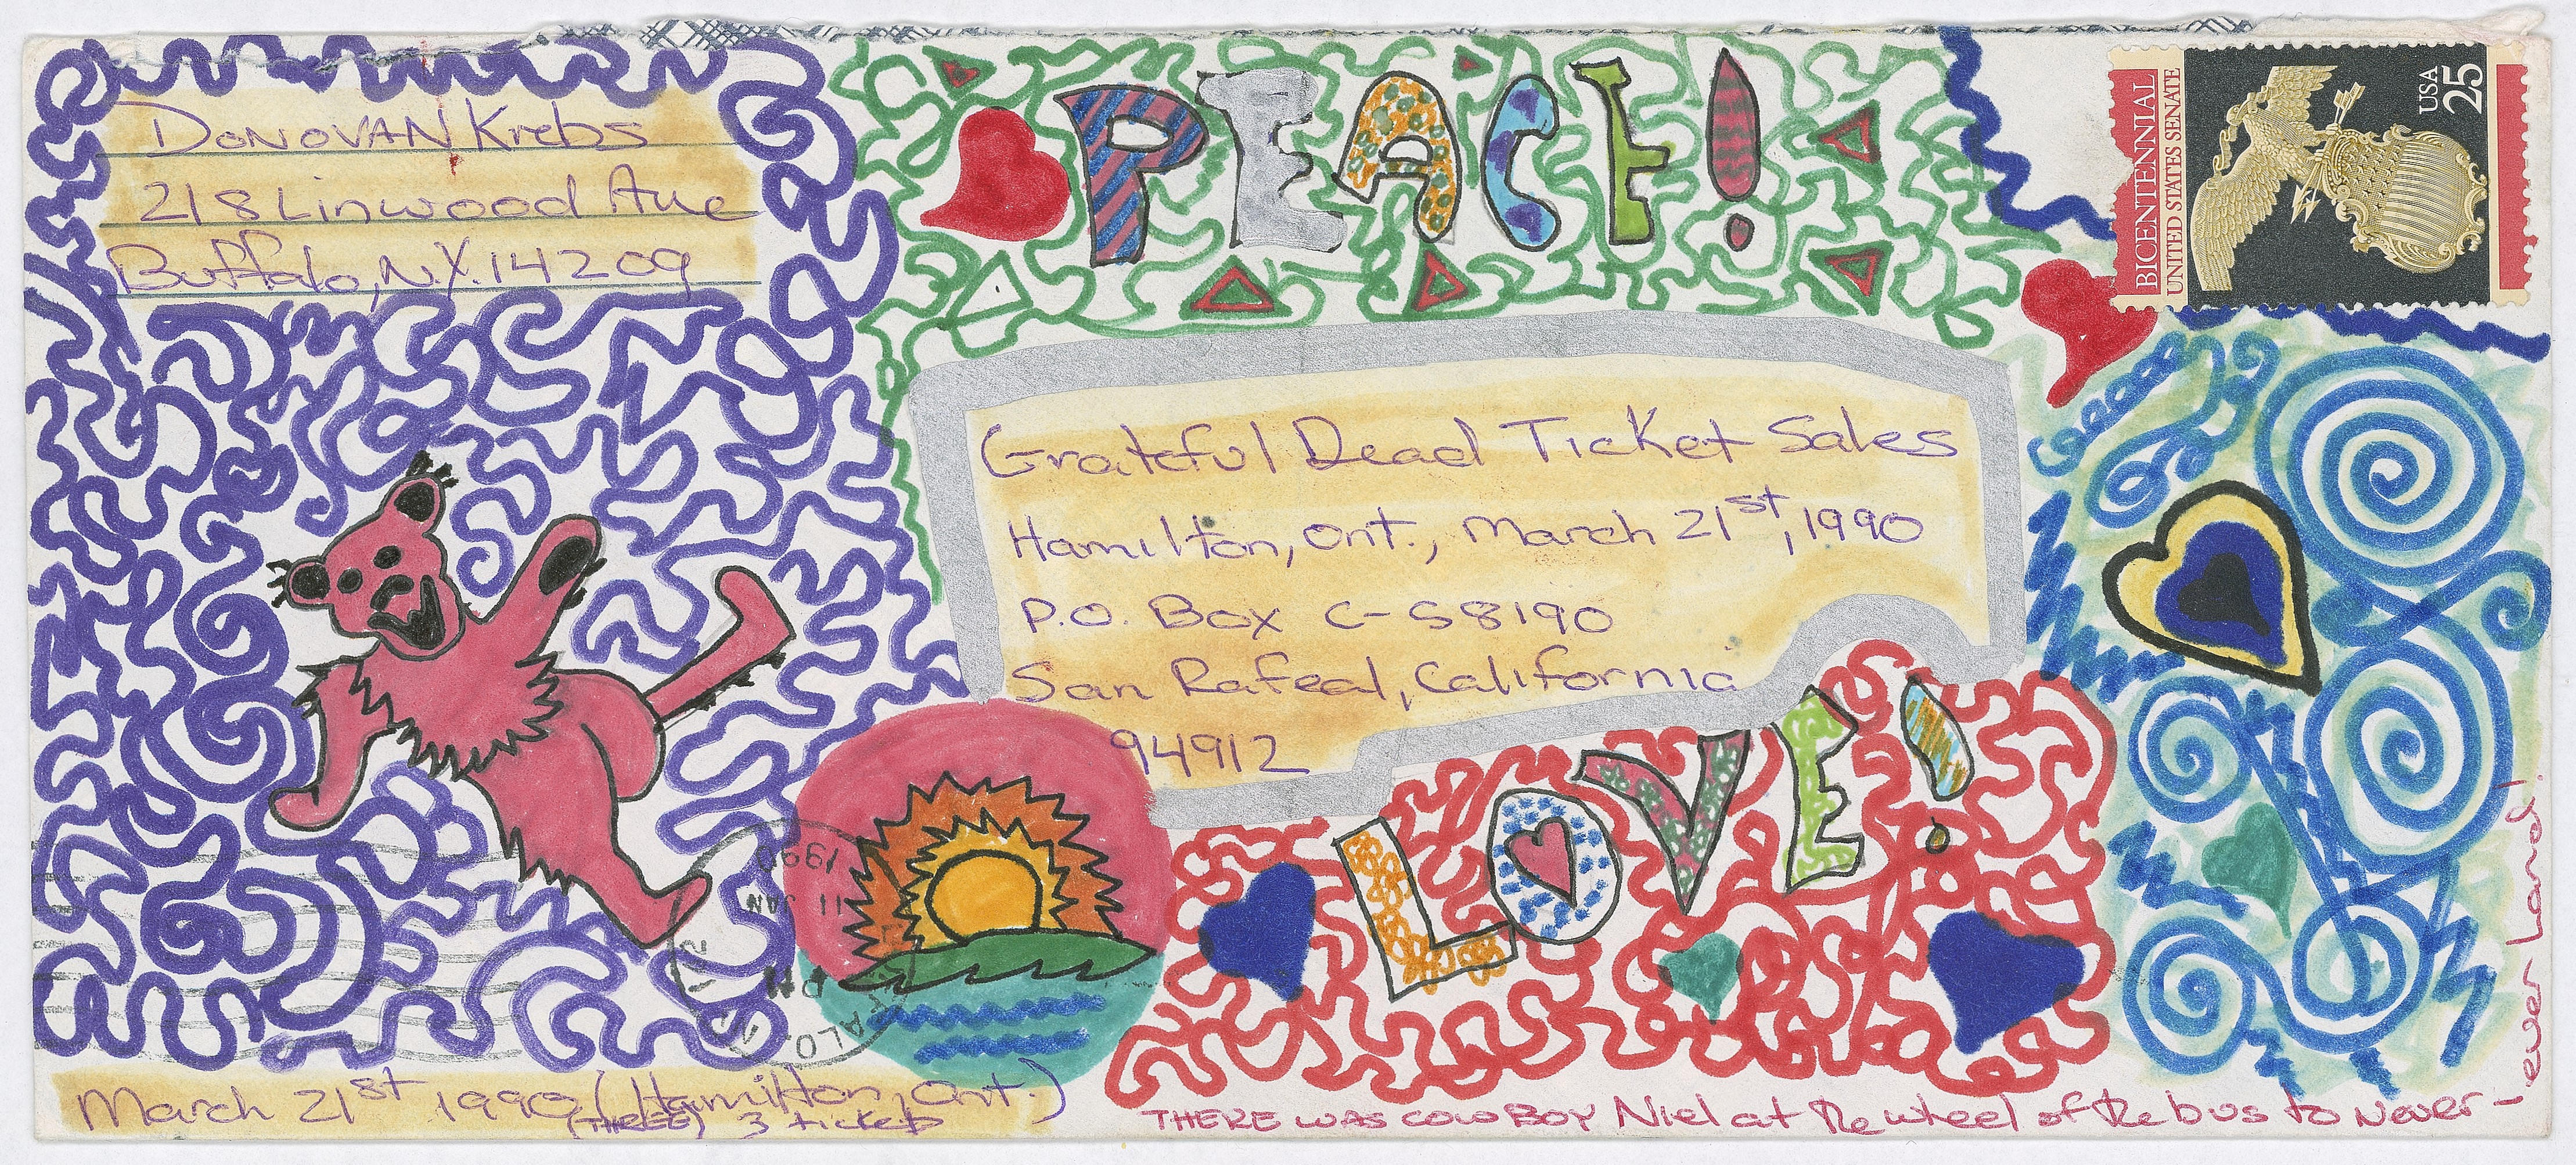 DONOVAN Krebs
218 Linwood Ave
Buffalo, N.Y. 14209
PEACE!
BICENTENNIAL
UNITED STATES SENATE
USA
25
Grateful Dead Ticket Sales
Hamilton, Ont., March 21st, 1990
P.O. Box C-S8190
San Rafeal, California
94912
LOVE!
1990
11 JAN
PM
March 21st 1990 (Hamilton, Ont.)
(THREE) 3 tickets
THERE WAS COWBOY Niel at the wheel of the bus to Never-
ever Land!